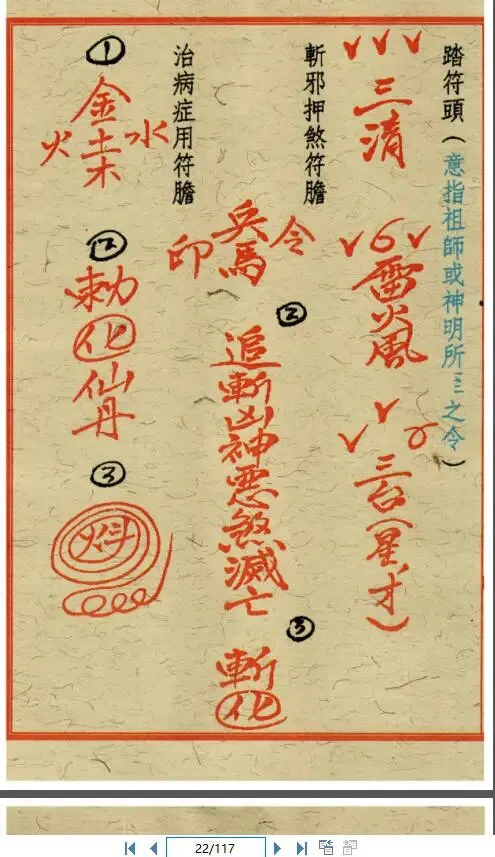 踏符頭(意指祖師或神明所 之令)
三清
雷火風
三台(星,才)
斬邪押煞符膽
令
兵馬
印
②
追斬凶神惡煞滅亡
③
斬化
治病症用符膽
①
金
火土水
木
②
勅化仙丹
③
22/117